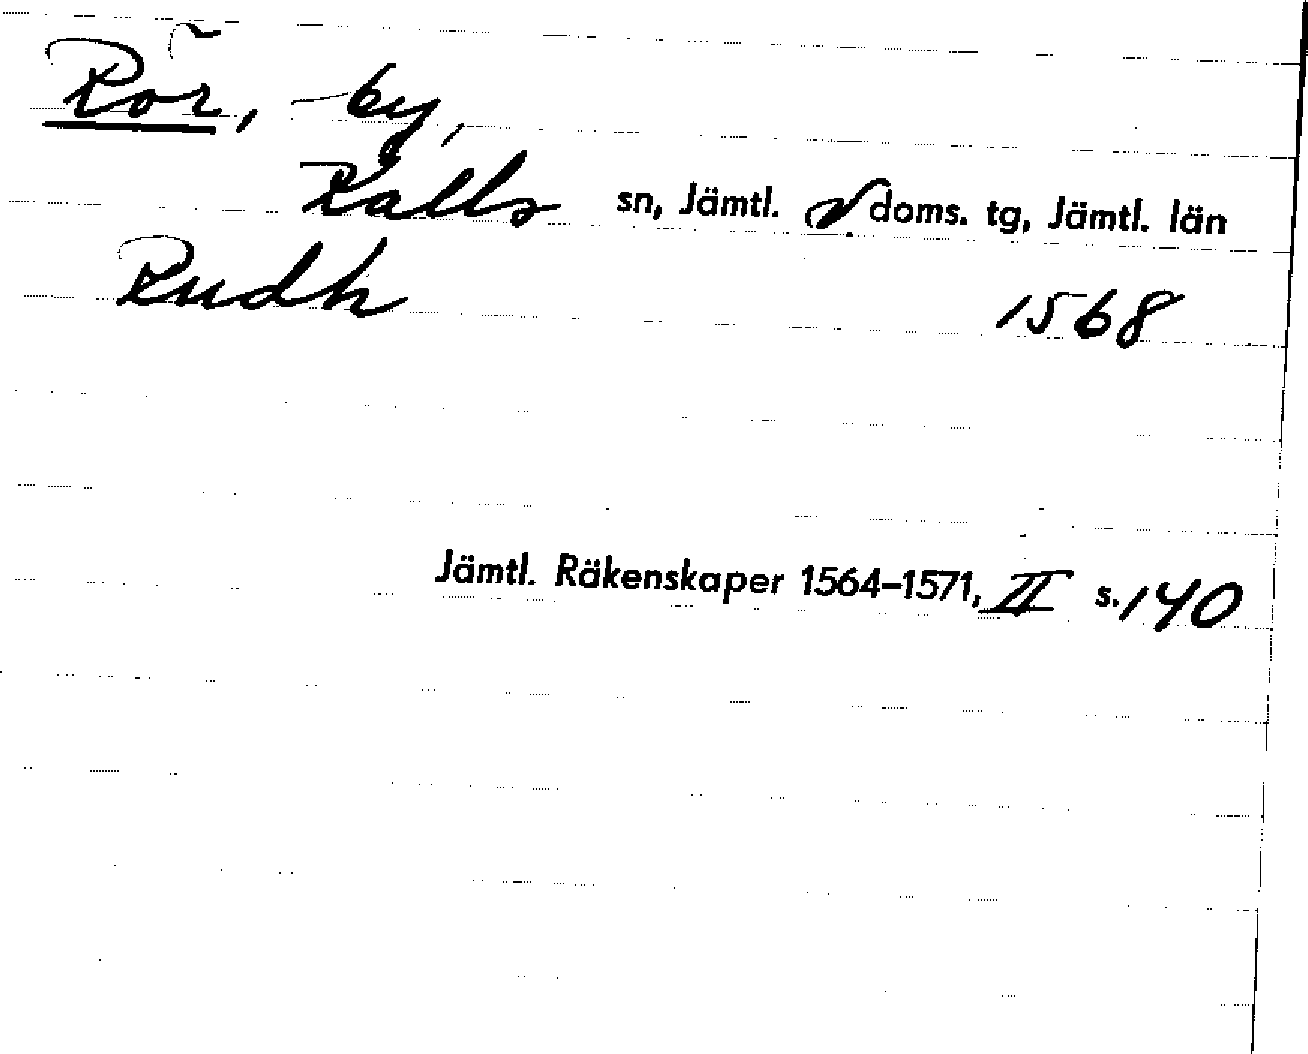 Rör, by,
Kalls sn, Jämtl. v. doms. tg, Jämtl. län
Rudh 1568
Jämtl. Räkenskaper 1564–1571, II s. 140